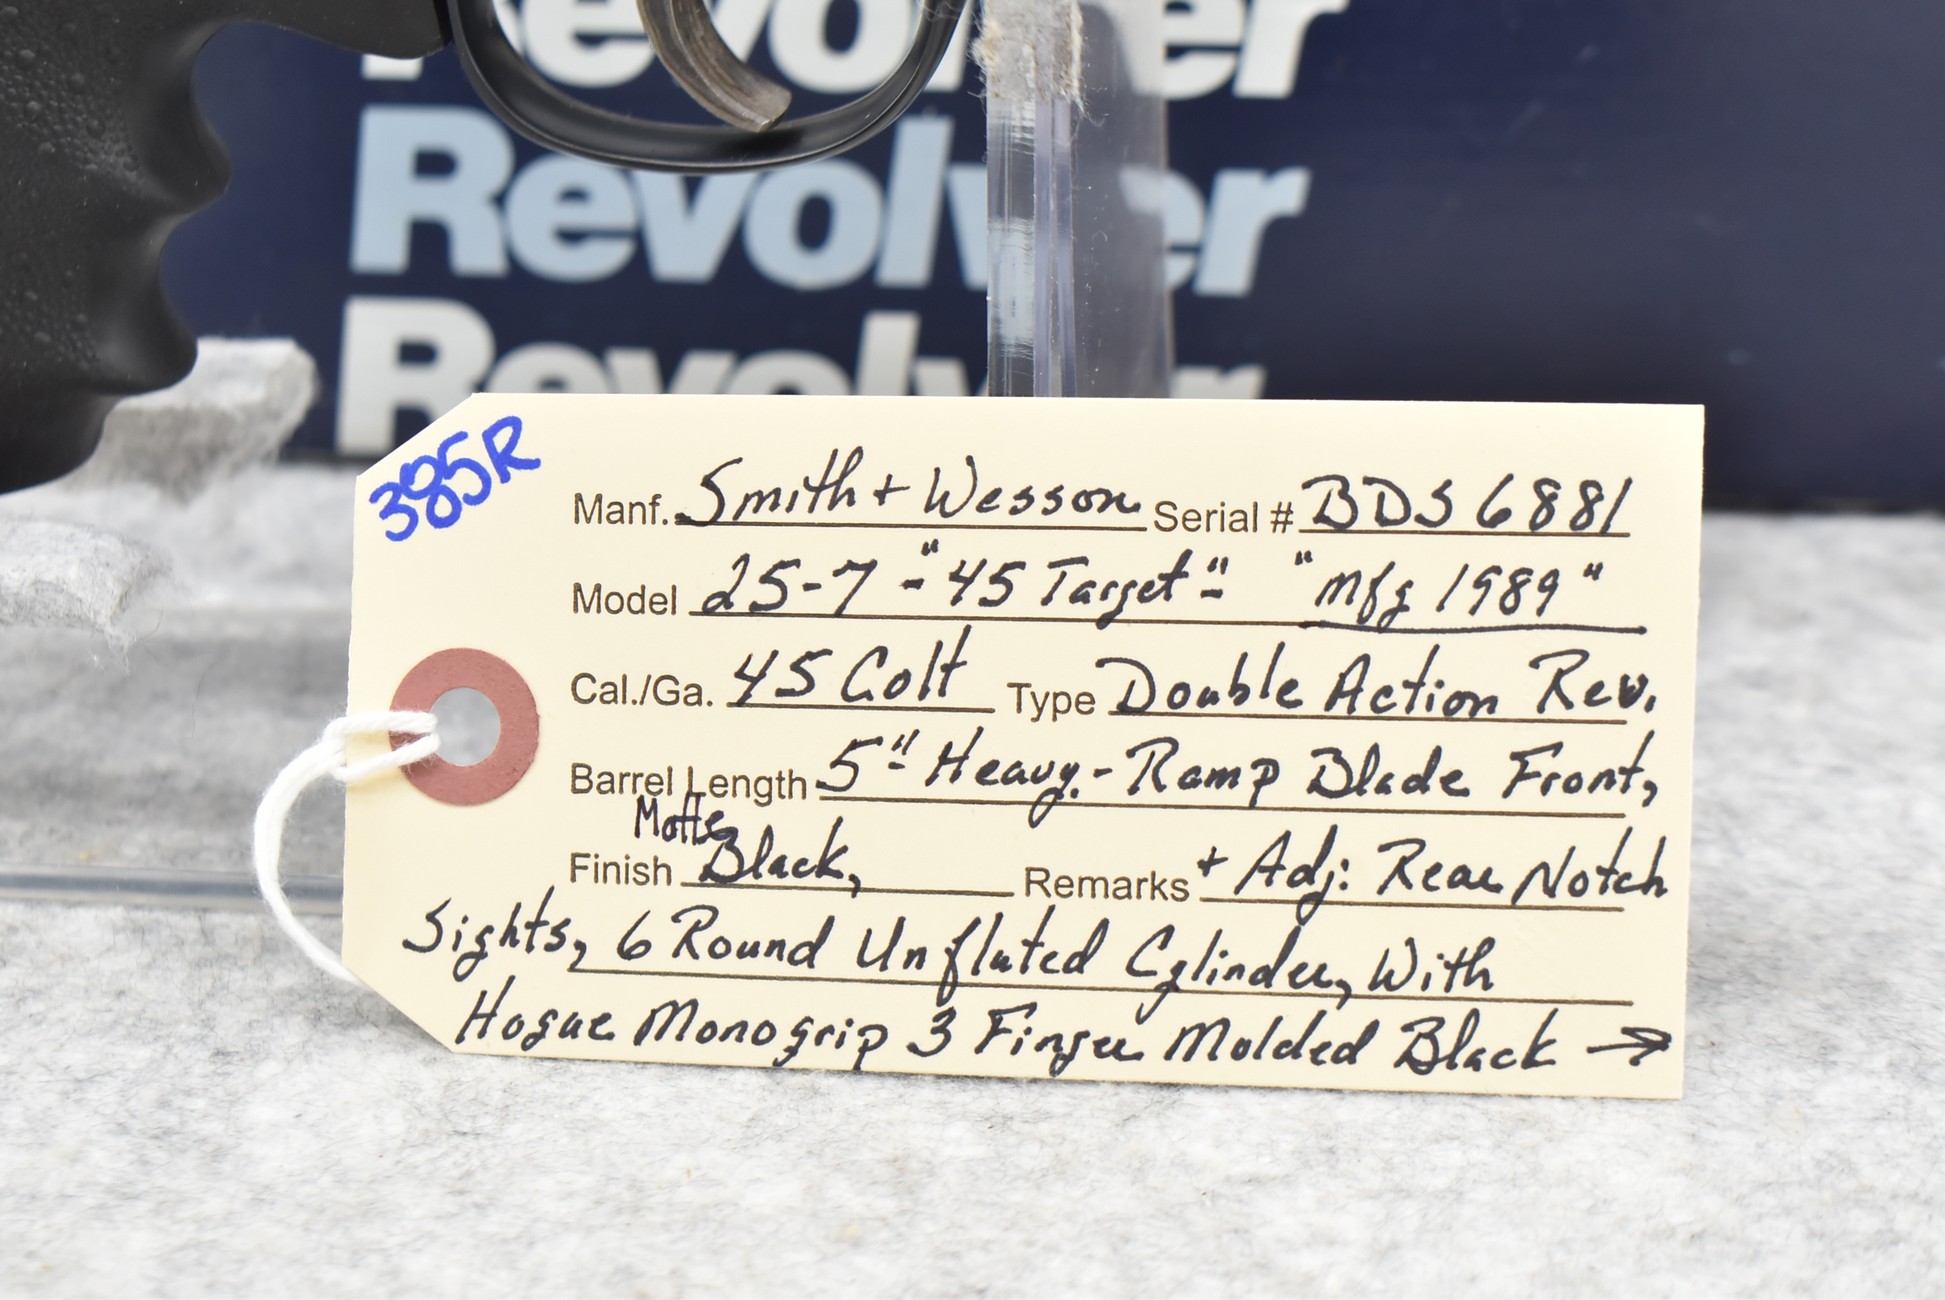 Revolver
Revolver
Revolver
385R
Manf. Smith + Wesson Serial # BDS 6881
Model 25-7 - "45 Target" - "Mfg 1989"
Cal./Ga. 45 Colt Type Double Action Rev.
Barrel Length 5" Heavy - Ramp Blade Front,
Matte
Finish Black, Remarks + Adj. Rear Notch
Sights, 6 Round Unfluted Cylinder, With
Hogue Monogrip 3 Finger Molded Black →